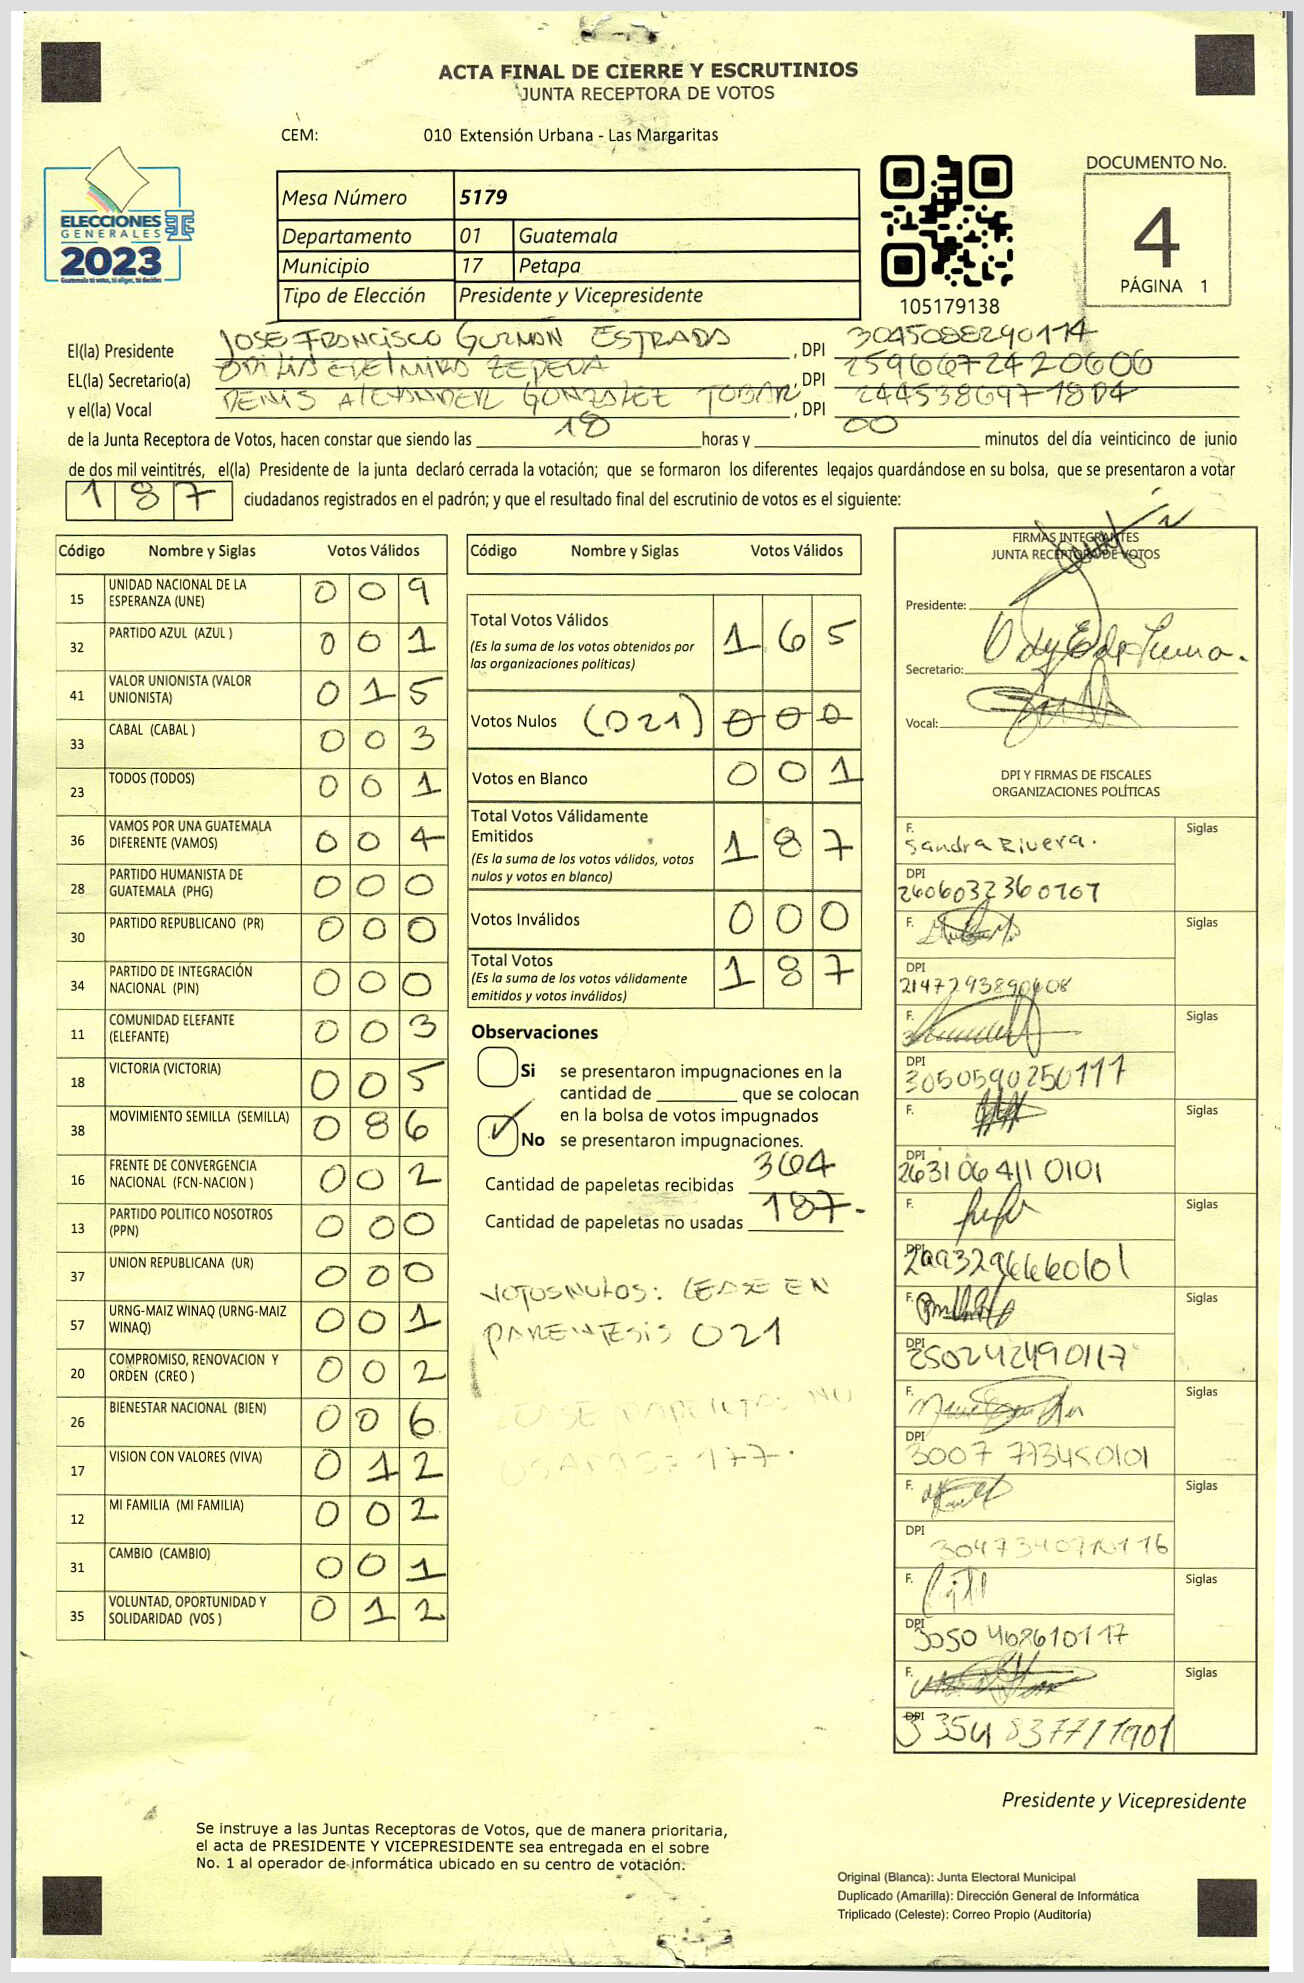 ACTA FINAL DE CIERRE Y ESCRUTINIOS
JUNTA RECEPTORA DE VOTOS
CEM: 010 Extensión Urbana - Las Margaritas
ELECCIONES
GENERALES
2023
Mesa Número 5179
Departamento 01 Guatemala
Municipio 17 Petapa
Tipo de Elección Presidente y Vicepresidente
105179138
DOCUMENTO No.
4
PÁGINA 1
El(la) Presidente JOSE FRANCISCO GUZMÁN ESTRADA, DPI 3045088290114
EL(la) Secretario(a) ZEPEDA, DPI 2596672420606
y el(la) Vocal DENIS ALEXANDER GONZALEZ TOBAR, DPI
de la Junta Receptora de Votos, hacen constar que siendo las 18 horas y 00 minutos del día veinticinco de junio
de dos mil veintitrés, el(la) Presidente de la junta declaró cerrada la votación; que se formaron los diferentes legajos guardándose en su bolsa, que se presentaron a votar
187 ciudadanos registrados en el padrón; y que el resultado final del escrutinio de votos es el siguiente:
Código Nombre y Siglas Votos Válidos
15 UNIDAD NACIONAL DE LA ESPERANZA (UNE) 009
32 PARTIDO AZUL (AZUL ) 001
41 VALOR UNIONISTA (VALOR UNIONISTA) 015
33 CABAL (CABAL ) 003
23 TODOS (TODOS) 001
36 VAMOS POR UNA GUATEMALA DIFERENTE (VAMOS) 004
28 PARTIDO HUMANISTA DE GUATEMALA (PHG) 000
30 PARTIDO REPUBLICANO (PR) 000
34 PARTIDO DE INTEGRACIÓN NACIONAL (PIN) 000
11 COMUNIDAD ELEFANTE (ELEFANTE) 003
18 VICTORIA (VICTORIA) 005
38 MOVIMIENTO SEMILLA (SEMILLA) 086
16 FRENTE DE CONVERGENCIA NACIONAL (FCN-NACION ) 002
13 PARTIDO POLITICO NOSOTROS (PPN) 000
37 UNION REPUBLICANA (UR) 000
57 URNG-MAIZ WINAQ (URNG-MAIZ WINAQ) 001
20 COMPROMISO, RENOVACION Y ORDEN (CREO ) 002
26 BIENESTAR NACIONAL (BIEN) 006
17 VISION CON VALORES (VIVA) 012
12 MI FAMILIA (MI FAMILIA) 002
31 CAMBIO (CAMBIO) 001
35 VOLUNTAD, OPORTUNIDAD Y SOLIDARIDAD (VOS ) 012
Código Nombre y Siglas Votos Válidos
Total Votos Válidos 165
(Es la suma de los votos obtenidos por
las organizaciones políticas)
Votos Nulos (021) 000
Votos en Blanco 001
Total Votos Válidamente
Emitidos 187
(Es la suma de los votos válidos, votos
nulos y votos en blanco)
Votos Inválidos 000
Total Votos 187
(Es la suma de los votos válidamente
emitidos y votos inválidos)
Observaciones
Si se presentaron impugnaciones en la
cantidad de ________ que se colocan
en la bolsa de votos impugnados
No se presentaron impugnaciones.
Cantidad de papeletas recibidas 364
Cantidad de papeletas no usadas 187.
VOTOS NULOS: LEASE EN
PARENTESIS 021
LEASE PAPELETAS NO
USADAS: 177.
FIRMAS INTEGRANTES
JUNTA RECEPTORA DE VOTOS
Presidente:
Secretario:
Vocal:
DPI Y FIRMAS DE FISCALES
ORGANIZACIONES POLÍTICAS
F. Sandra Rivera. Siglas
DPI 2606032360707
F. Siglas
DPI
F. Siglas
DPI 3050590250117
F. Siglas
DPI 2631064110101
F. Siglas
DPI
F. Siglas
DPI 2502424990117
F. Siglas
DPI 3007773450101
F. Siglas
DPI
F. Siglas
DPI 3050468610117
F. Siglas
DPI
Presidente y Vicepresidente
Se instruye a las Juntas Receptoras de Votos, que de manera prioritaria,
el acta de PRESIDENTE Y VICEPRESIDENTE sea entregada en el sobre
No. 1 al operador de informática ubicado en su centro de votación.
Original (Blanca): Junta Electoral Municipal
Duplicado (Amarilla): Dirección General de Informática
Triplicado (Celeste): Correo Propio (Auditoría)